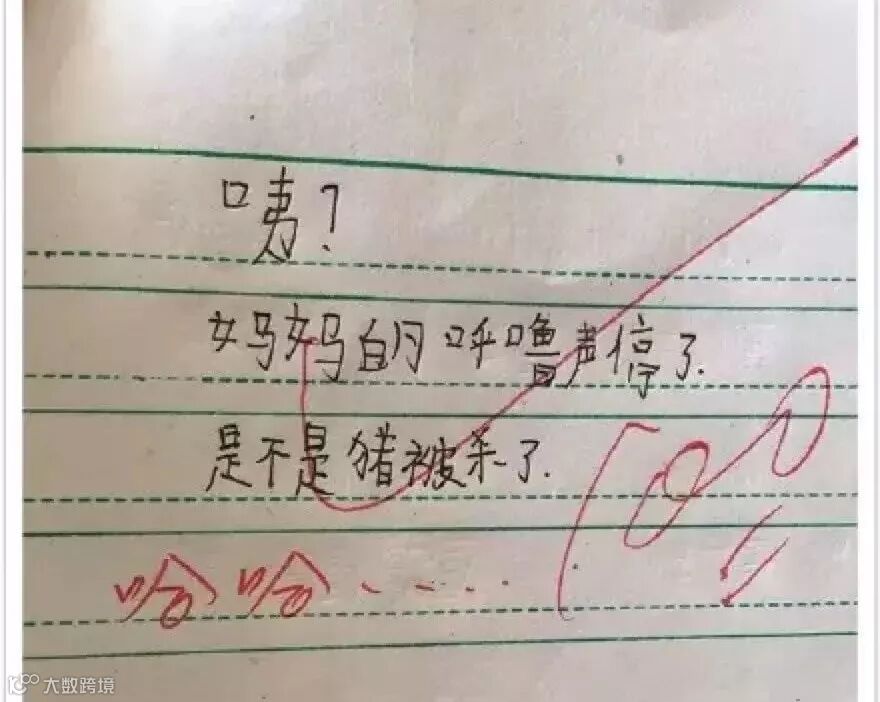 咦？
妈妈的呼噜声停了.
是不是猪被杀了.
哈哈......
100
大数跨境